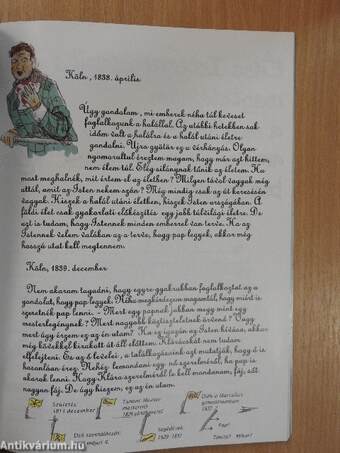 Köln, 1838. április
Úgy gondolom, mi emberek néha túl keveset
foglalkozunk a halállal. Az utóbbi hetekben sok
időm volt a halálra és a halál utáni életre
gondolni. Újra gyötör ez a vérhányás. Olyan
nyomorultul éreztem magam, hogy már azt hittem,
nem élem túl. Elég silánynak tűnik az életem. Ha
most meghalnék, mit értem el az életben? Milyen távol vagyok még
attól, amit az Isten nekem szán? Még mindig csak az út keresésén
vagyok. Hiszek a halál utáni életben, hiszek Isten országában. A
földi élet csak gyakorlati előkészítés egy jobb túlvilági életre. De
azt is tudom, hogy Istennek minden emberrel van terve. Ha az
Istennek velem valóban az a terve, hogy pap legyek, akkor még
hosszú utat kell megtennem.
Köln, 1839. december
Nem akarom tagadni, hogy egyre gyakrabban foglalkoztat az a
gondolat, hogy pap legyek. Néha megkérdezem magamtól, hogy miért is
szeretnék pap lenni. - Mert egy papnak jobban megy mint egy
mesterlegénynek? Mert nagyobb köztiszteletnek örvend? Vagy
mert úgy érzem ez az én utam? Ha ez igazán az Isten hívása, akkor
még kövekkel kirakott út áll előttem. Klárácskát nem tudom
elfelejteni. És az ő levelei, a találkozásaink azt mutatják, hogy ő is
hasonlóan érez. Nehéz lemondani egy nő szerelméről, ha pap is
akarok lenni. Hogy Klára szerelméről le kell mondanom, fáj, sőt
nagyon fáj. De úgy hiszem, ez az én utam.
Születés
december
Tanonc
Első szentáldozás
Segéd
Diák a Marcellus
gimnáziumban
Pap!
Tanuló?
Mikor?
antikvarium.hu